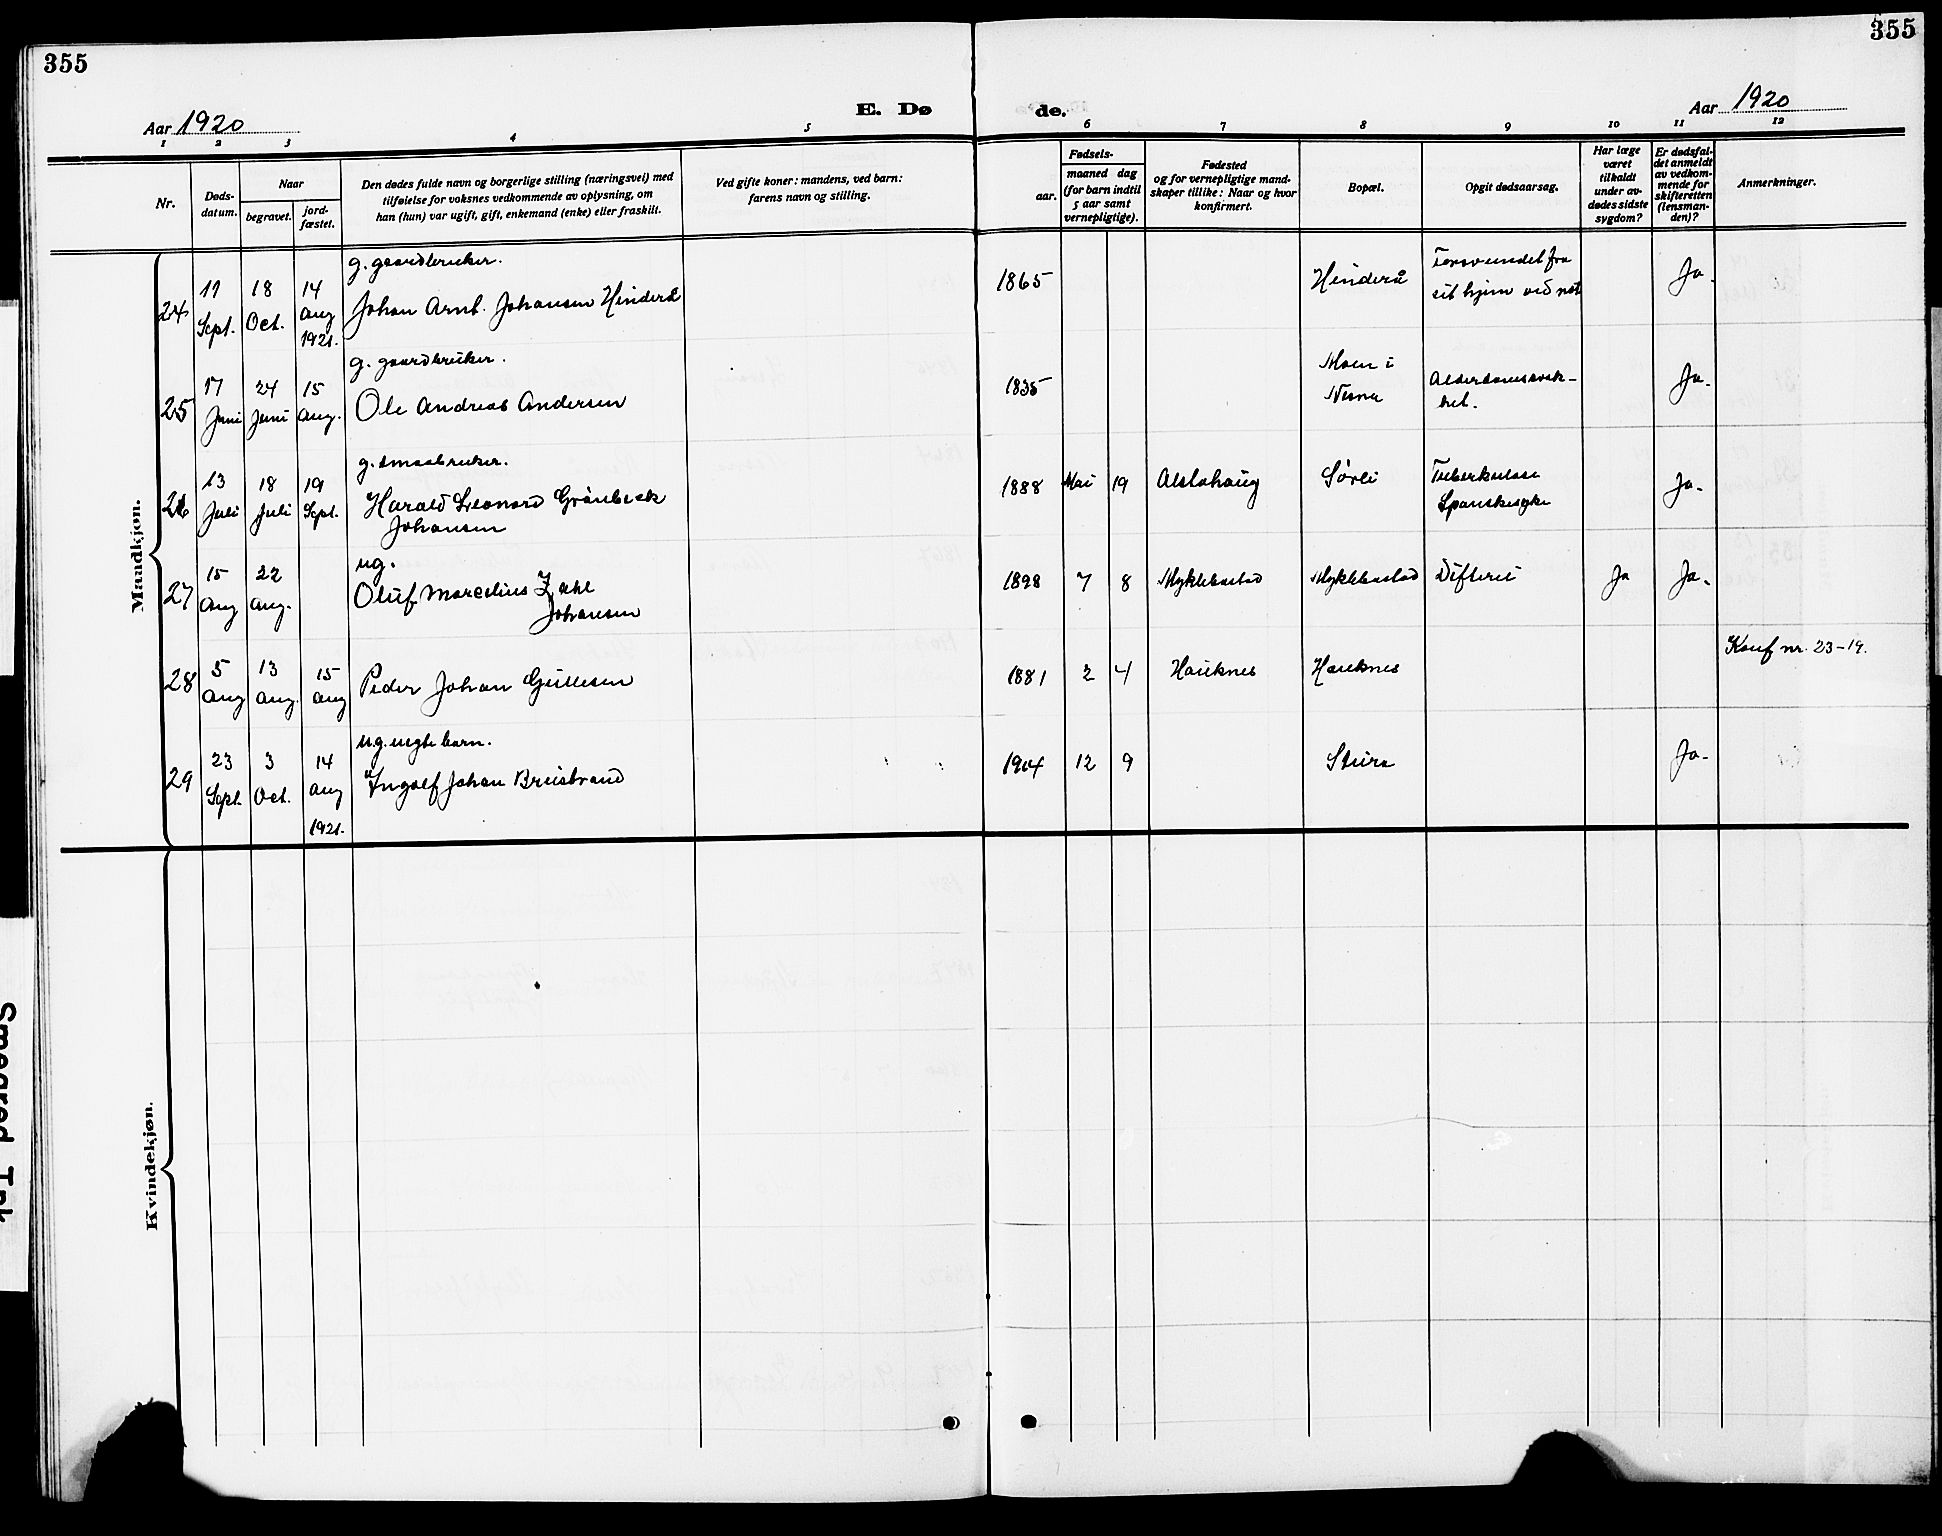 355
355
Aar 1920
E. Dø
de.
Aar 1920
1 2 3 4 5 6 7 8 9 10 11 12
Nr.
Døds-
datum.
Naar
begravet.
jord-
fæstet.
Den dødes fulde navn og borgerlige stilling (næringsvei) med
tilføielse for voksnes vedkommende av oplysning, om
han (hun) var ugift, gift, enkemand (enke) eller fraskilt.
Ved gifte koner: mandens, ved barn:
farens navn og stilling.
Fødsels-
aar.
maaned dag
(for barn indtil
5 aar samt
vernepligtige).
Fødested
og for vernepligtige mand-
skaper tillike: Naar og hvor
konfirmert.
Bopæl.
Opgit dødsaarsag.
Har læge
været
tilkaldt
under av-
dødes sidste
sygdom?
Er dødsfal-
det anmeldt
av vedkom-
mende for
skifteretten
(lensman-
den)?
Anmerkninger.
Mandkjøn.
24
11
Sept.
18
Oct.
14
Aug
1921.
g. gaardbruker.
Johan Arnt. Johansen Hinderå
1865
Hinderå
Forsvundet fra
sit hjem ved nat
Ja.
25
17
Juni
24
Juni
15
Aug.
g. gaardbruker.
Ole Andreas Andersen
1835
Moen i
Nesna
Alderdomssvak-
het.
Ja.
26
13
Juli
18
Juli
19
Sept.
g. smaabruker.
Harald Leonard Grönbeck
Johansen
1888 Mai 19 Alstahaug Sörli
Tuberkulose
Spanskesyke
Ja.
27
15
Aug
22
Aug.
ug.
Oluf Marcelius Zahl
Johansen
1898 7 8 Myklebustad Myklebustad Difteri Ja Ja.
28
5
Aug
13
Aug.
15
Aug
Peder Johan Gullesen
1881 2 4 Hauknes Hauknes
Konf nr. 23-19.
29
23
Sept.
3
Oct.
14
Aug
1921.
ug. uegte barn.
Ingolf Johan Breistrand
1904 12 9
Ja.
Kvindekjøn.